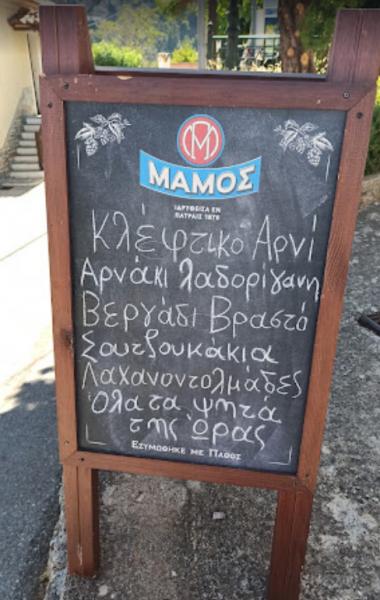 ΜΑΜΟΣ
ΙΔΡΥΘΕΙΣΑ ΕΝ
ΠΑΤΡΑΙΣ 1876
Κλέφτικο Αρνί
Αρνάκι λαδορίγανη
Βεργάδι Βραστό
Σουτζουκάκια
Λαχανοντολμάδες
Όλα τα ψητά
της Ώρας
ΕΖΥΜΩΘΗΚΕ ΜΕ ΠΑΘΟΣ